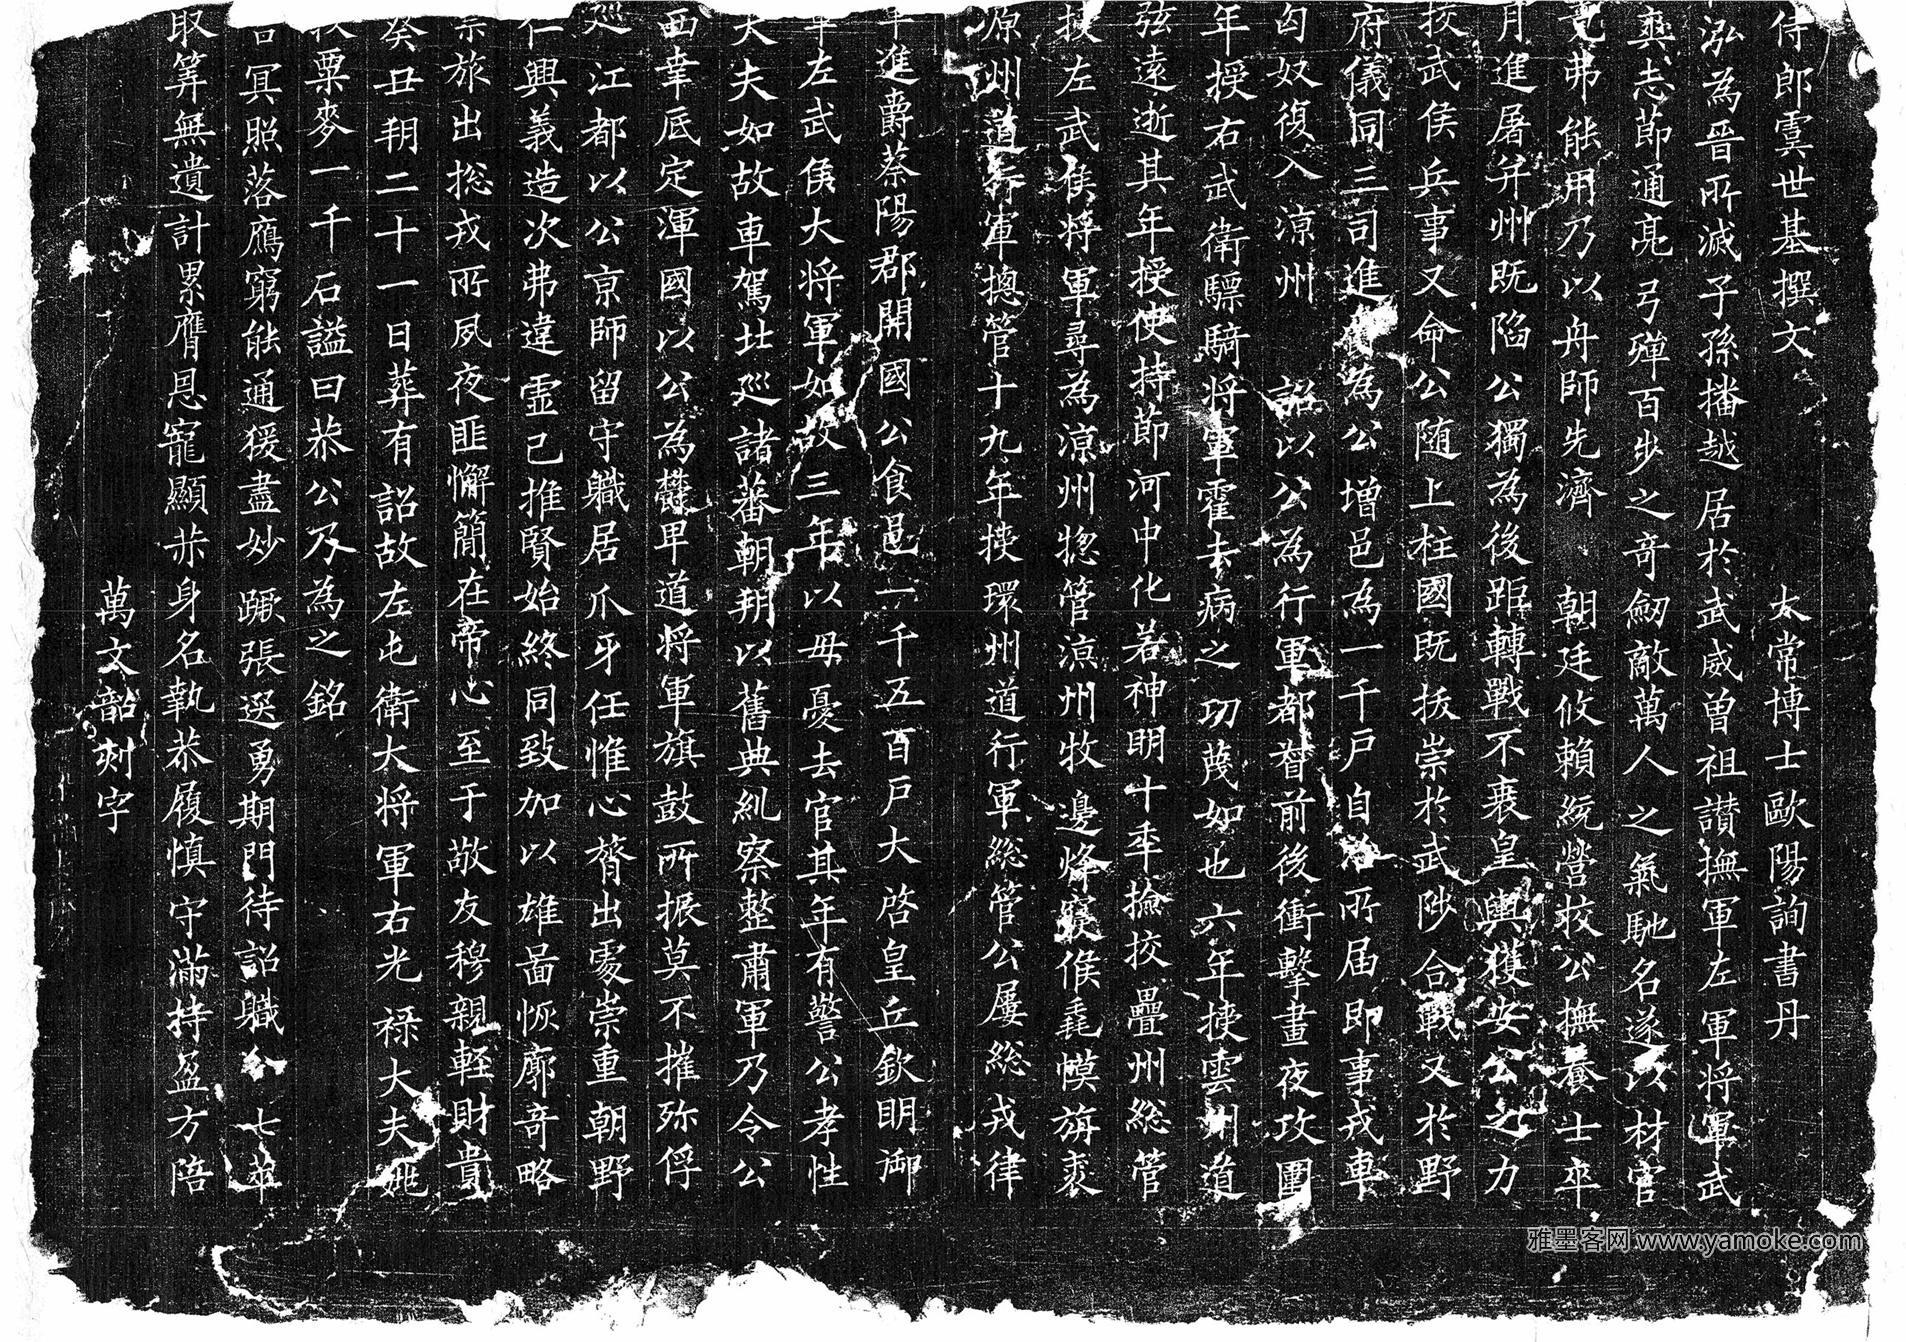 侍郎虞世基撰文 太常博士歐陽詢書丹
泓為晉所滅子孫播越居於武威曽祖讃撫軍左軍将軍武
爽志節通亮弓彈百步之奇劒敵萬人之氣馳名遂以材官
弗能用乃以舟師先濟 朝廷攸賴統營校公撫養士卒
月進屠并州既陷公獨為後距轉戰不衰皇輿獲安公之力
授武侯兵事又命公随上柱國既拔崇於武陟合戰又於野
府儀同三司進 為公增邑為一千戶自 所届即事戎車
匈奴復入涼州 詔以公為行軍都督前後衝擊晝夜攻圍
年授右武衛驃騎将軍霍去病之功蔑如也六年授雲州道
弦遠逝其年授使持節河中化若神明十年撿挍疊州総管
授左武侯将軍尋為涼州惣管涼州牧邊烽 候毳幙旃裘
原州道行軍摠管十九年授環州道行軍総管公屢総戎律
進爵蔡陽郡開國公食邑一千五百戶大啓皇丘欽明御
左武侯大将軍如故三年以母憂去官其年有警公孝性
大夫如故車駕北巡諸蕃朝朔以舊典糺察整肅軍乃令公
西幸底定渾國以公為 道将軍旗鼓所振莫不摧殄俘
巡江都以公京師留守職居爪牙任惟心膂出 崇重朝野
仁興義造次弗違霊己推賢始終同致加以雄啚恢廓奇略
旅出総戎所夙夜匪懈簡在帝心至于敬友穆親輕財貴
癸丑朔二十一日葬有詔故左屯衛大将軍右光禄大夫姚
粟麥一千石謚曰恭公乃為之銘
冥照落鴈窮能通猨盡妙蹶張選勇期門待詔職 七萃
取筭無遺計累膺恩寵顯赤身名執恭履慎守滿持盈方陪
萬文韶刻字
雅墨客网 www.yamoke.com